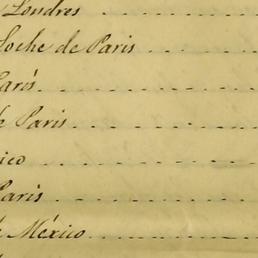 Londres
Loche de Paris
Paris
de Paris
ico
Paris
de México